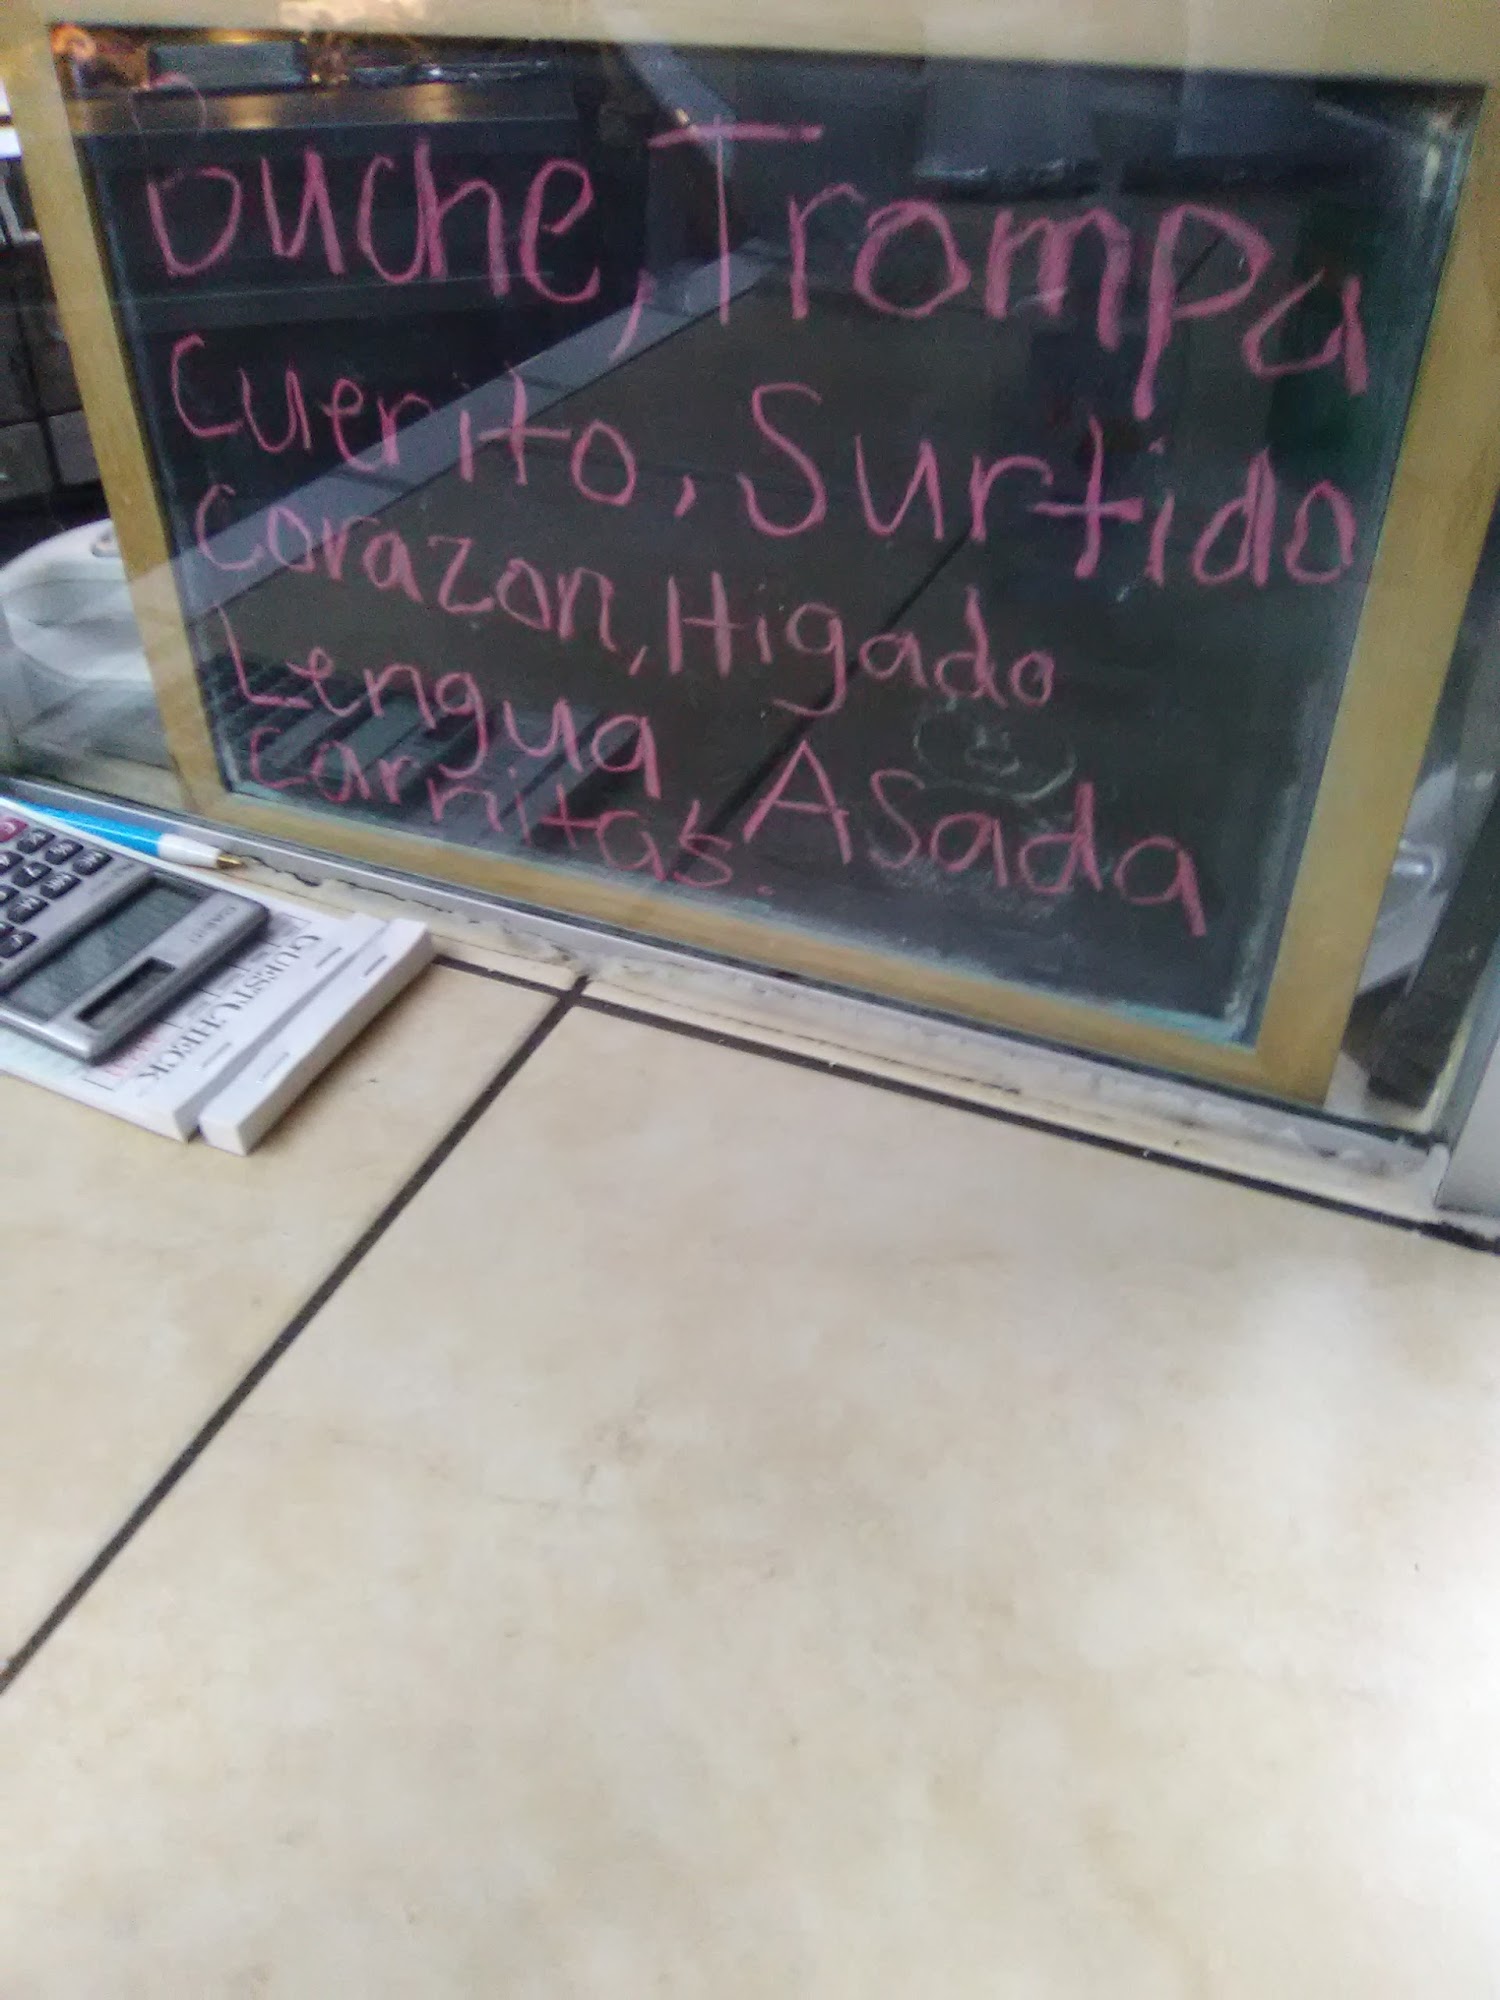 Buche, Trompa
Cuerito, Surtido
Corazon, Higado
Lengua Asada
carnitas.
GUEST CHECK